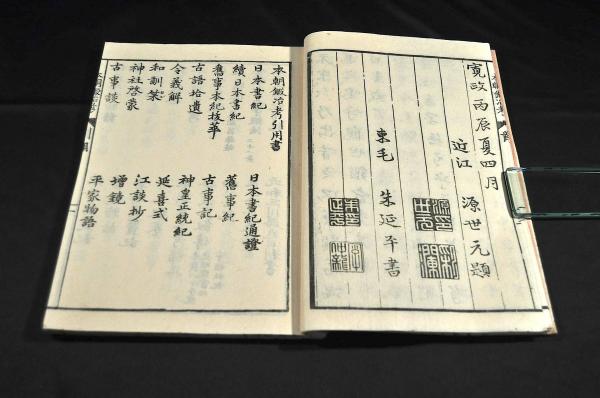 寛政丙辰夏四月
近江 源世元題
東毛 朱延平書
本朝鍛冶考引用書
日本書紀 日本書紀通證
續日本書紀 舊事紀
舊事本紀抜萃 古事記
古語拾遺 神皇正統紀
令義解 延喜式
和訓栞 江談抄
神社啓蒙 増鏡
古事談 平家物語